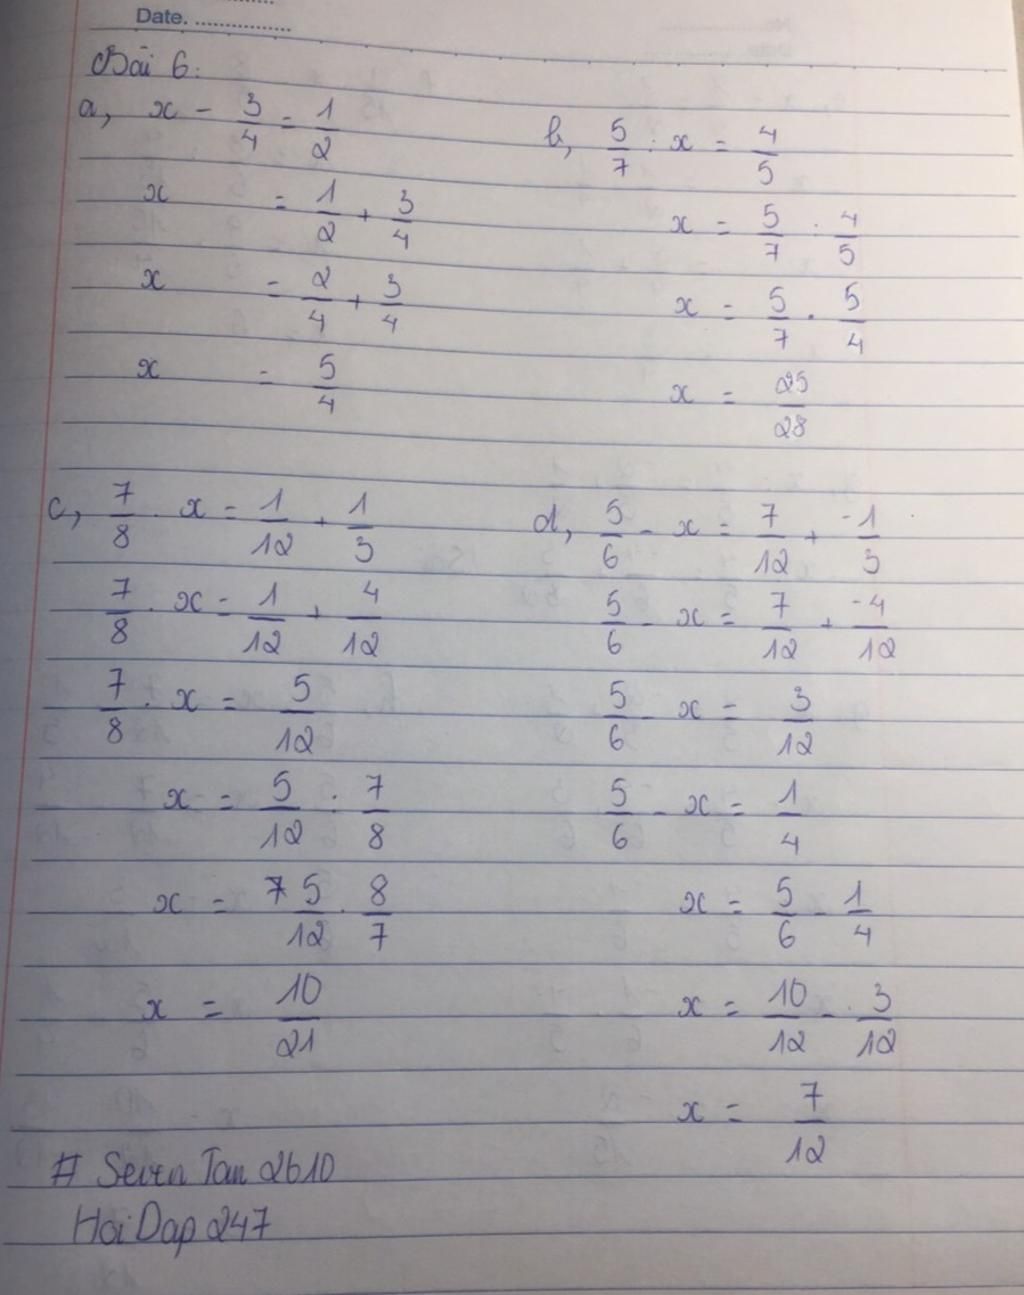 Date. ................
Bài 6:
a, x - 3/4 = 1/2
x = 1/2 + 3/4
x = 2/4 + 3/4
x = 5/4
b, 5/7 : x = 4/5
x = 5/7 : 4/5
x = 5/7 . 5/4
x = 25/28
c, 7/8 . x = 1/12 + 1/3
7/8 . x = 1/12 + 4/12
7/8 . x = 5/12
x = 5/12 : 7/8
x = 5/12 . 8/7
x = 10/21
d, 5/6 - x = 7/12 + -1/3
5/6 - x = 7/12 + -4/12
5/6 - x = 3/12
5/6 - x = 1/4
x = 5/6 - 1/4
x = 10/12 - 3/12
x = 7/12
# Seven Tan 2610
Hoi Dap 247